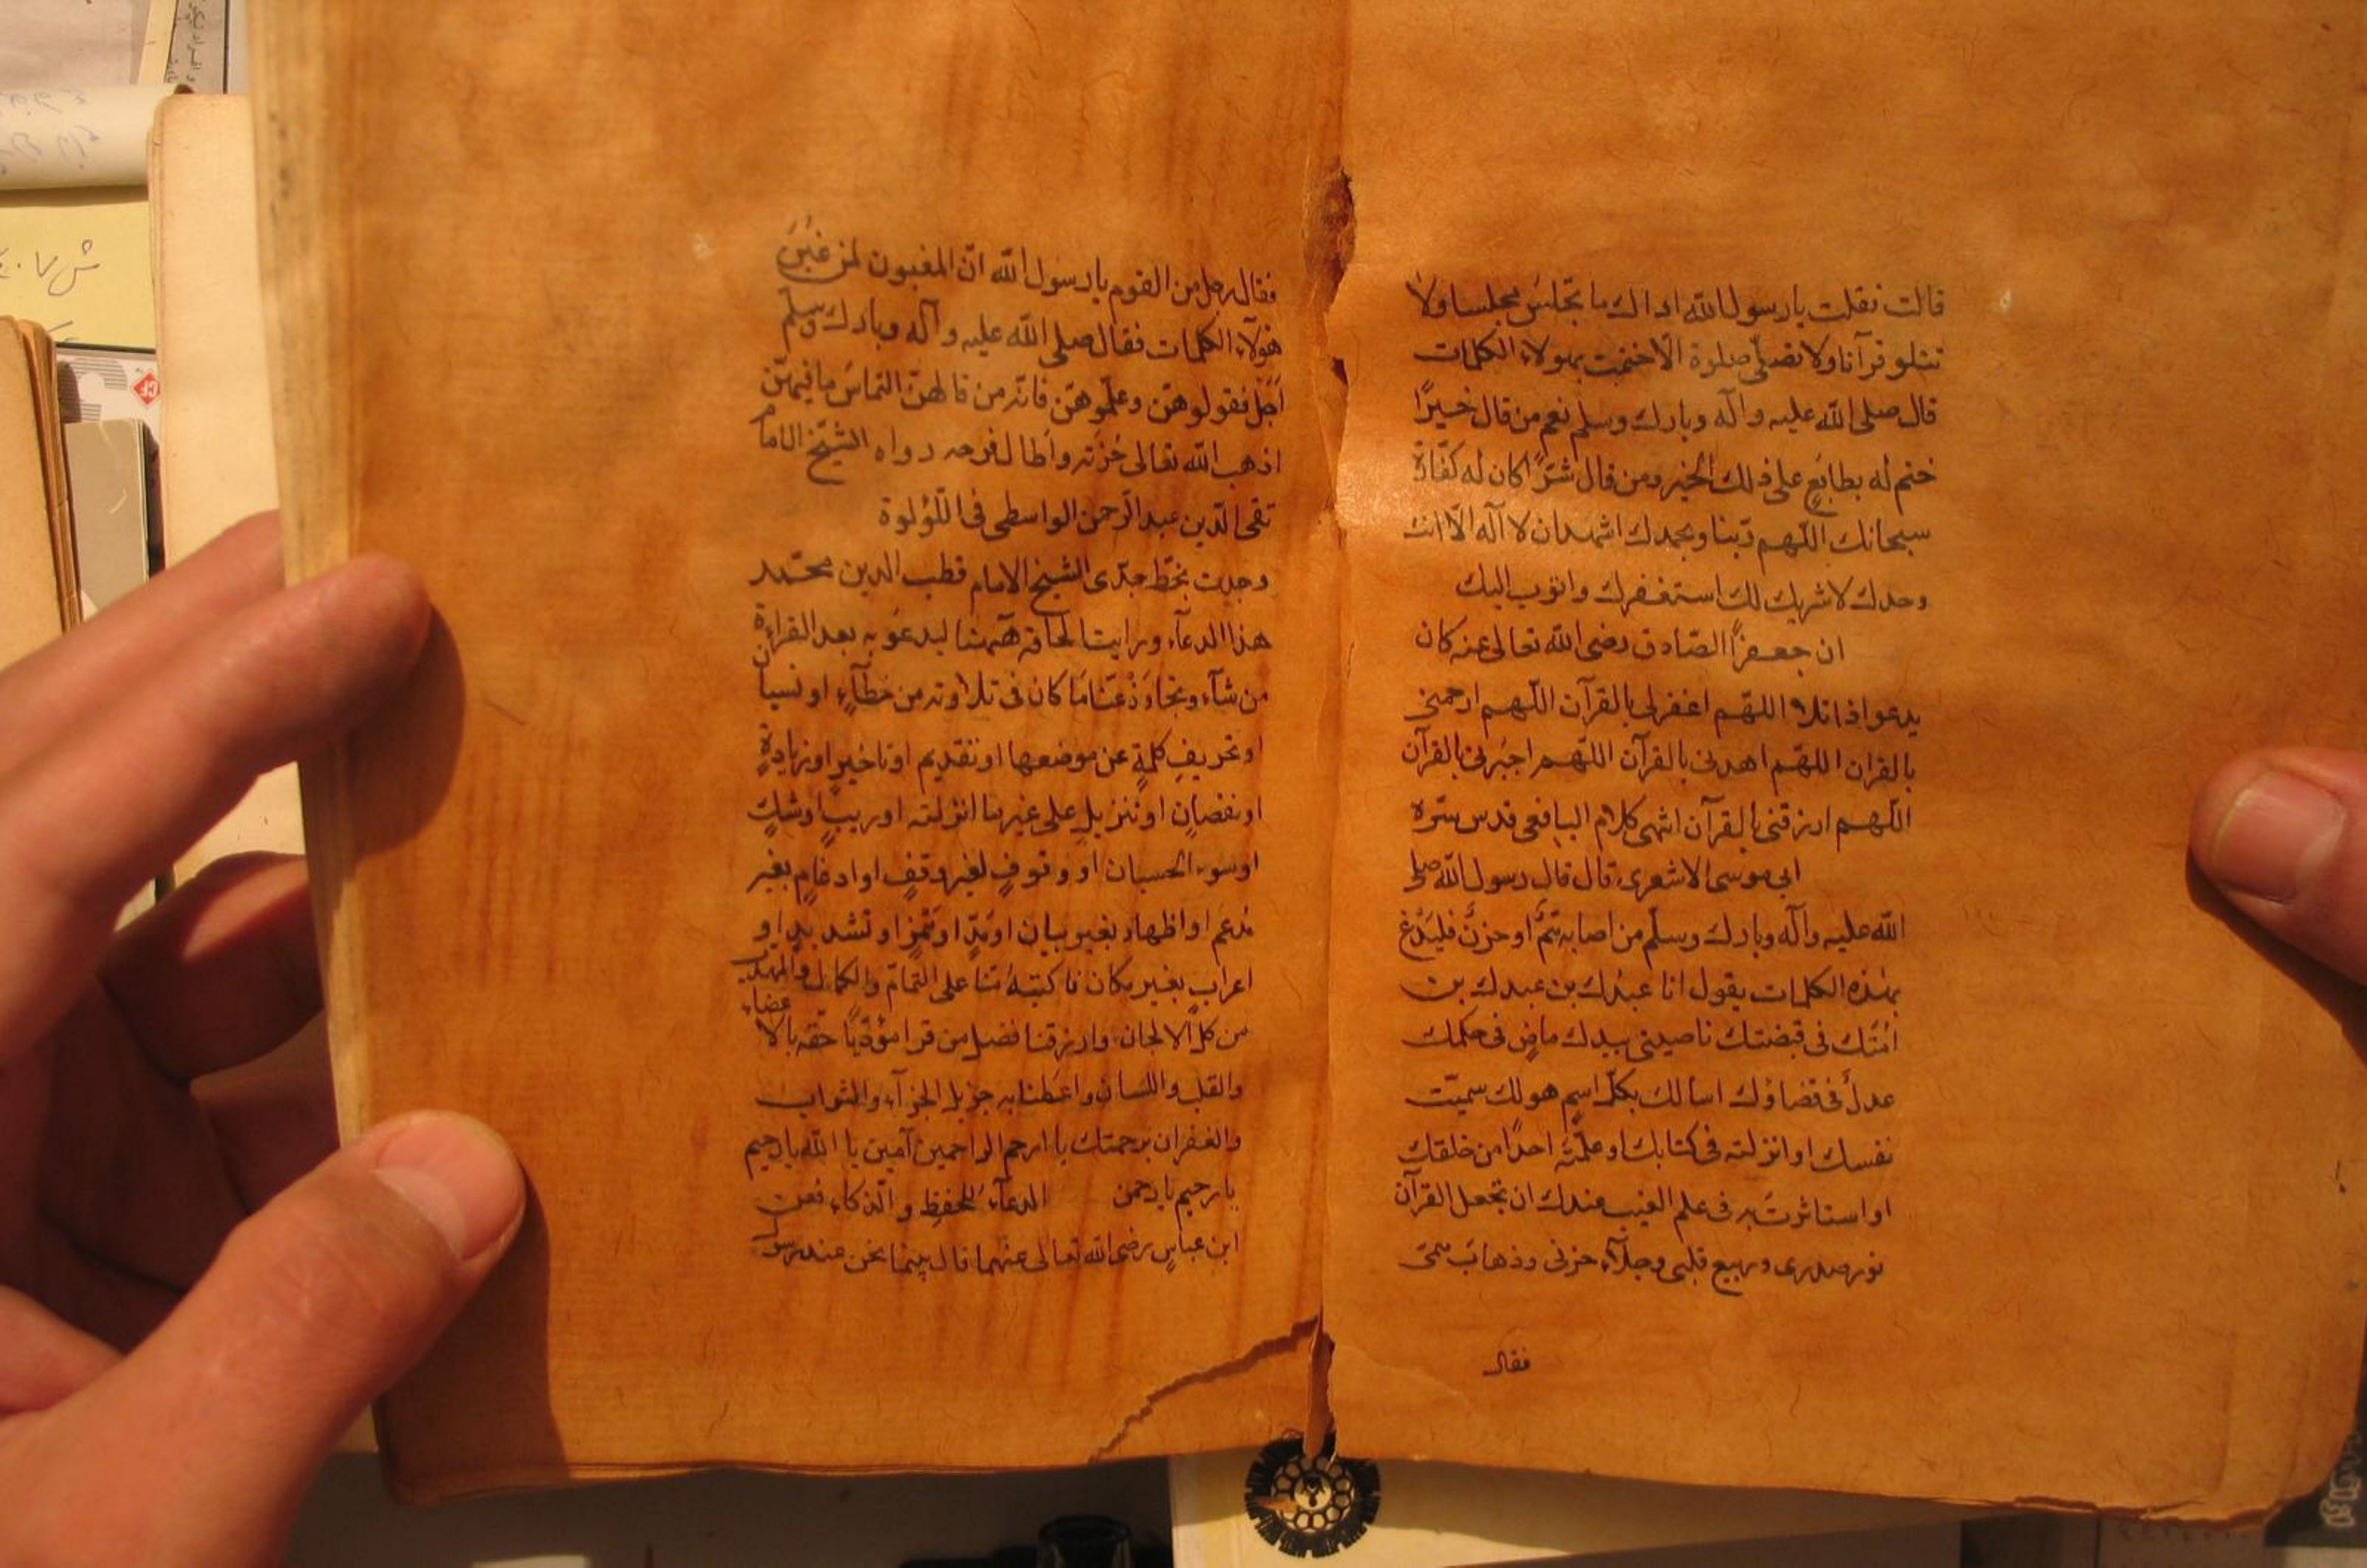 قالت فقلت يا رسول الله اراك ما تجلس مجلسا ولا
تتلو قرآنا ولا تصلى صلوة الا ختمت بهولاء الكلمات
قال صلى الله عليه وآله وبارك وسلم نعم من قال خيرًا
ختم له بطابعٍ على ذلك الخير ومن قال شرًّا كان له كفارة
سبحانك اللهم ربنا وبحمدك اشهد ان لا اله الا انت
وحدك لا شريك لك استغفرك واتوب اليك
ان جعفرًا الصادق رضى الله تعالى عنه كان
يدعو اذا تلا اللهم اغفر لى بالقرآن اللهم ارحمنى
بالقران اللهم اهدنى بالقرآن اللهم اجبرنى بالقرآن
اللهم ارزقنى بالقرآن انتهى كلام اليافعى قدس سره
ابى موسى الاشعرى قال قال رسول الله صلى
الله عليه وآله وبارك وسلم من اصابه همٌّ او حزنٌ فليدع
بهذه الكلمات يقول انا عبدك بن عبدك بن
امتك فى قبضتك ناصيتى بيدك ماضٍ فى حكمك
عدلٌ فى قضاؤك اسالك بكل اسمٍ هو لك سميت
نفسك او انزلته فى كتابك او علمته احدًا من خلقك
او استاثرت به فى علم الغيب عندك ان تجعل القرآن
نور صدرى وربيع قلبى وجلاء حزنى وذهاب همى
فقال
فقال رجل من القوم يا رسول الله ان المغبون لمن غبن
هؤلاء الكلمات فقال صلى الله عليه وآله وبارك وسلم
اجل فقولوهن وعلموهن فانه من قالهن التماس ما فيهن
اذهب الله تعالى حزنه واطال فرحه رواه الشيخ الامام
تقى الدين عبد الرحمن الواسطى فى اللؤلوة
وجدت بخط جدى الشيخ الامام قطب الدين محمد
هذا الدعاء ورايت الحاقه ههنا ليدعو به بعد القراءة
من شاء وتجاوز عنا ما كان فى تلاوته من خطآءٍ او نسيان
او تحريف كلمةٍ عن موضعها او تقديم او تاخيرٍ او زيادةٍ
او نقصانٍ او تنزيلٍ على غير ما انزلته او ريبٍ او شكٍ
او سوء الحسبان او وقوفٍ لغير وقفٍ او ادغامٍ بغير
مدغم او اظهار بغير بيان او مدٍّ او همزٍ او تشديدٍ او
اعرابٍ بغير مكان فاكتبه منا على التمام والكمال والمهذب
من كل الالحان وارزقنا فضل من قرا مؤديًا حقه بالاعضاء
والقلب واللسان واعطنا به جزيل الجزآء والثواب
والغفران برحمتك يا ارحم الراحمين آمين يا الله يا رحيم
يا رحيم يا رحمن الدعآء للحفظ والذكاء فعن
ابن عباسٍ رضى الله تعالى عنهما قال بينما نحن عند رسول